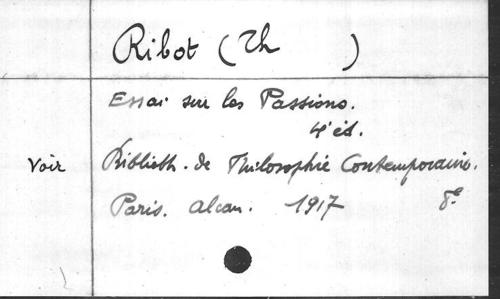 Ribot (Th )
Essai sur les Passions.
4e éd.
Voir Biblioth. de Philosophie Contemporaine.
Paris. Alcan. 1917 8°